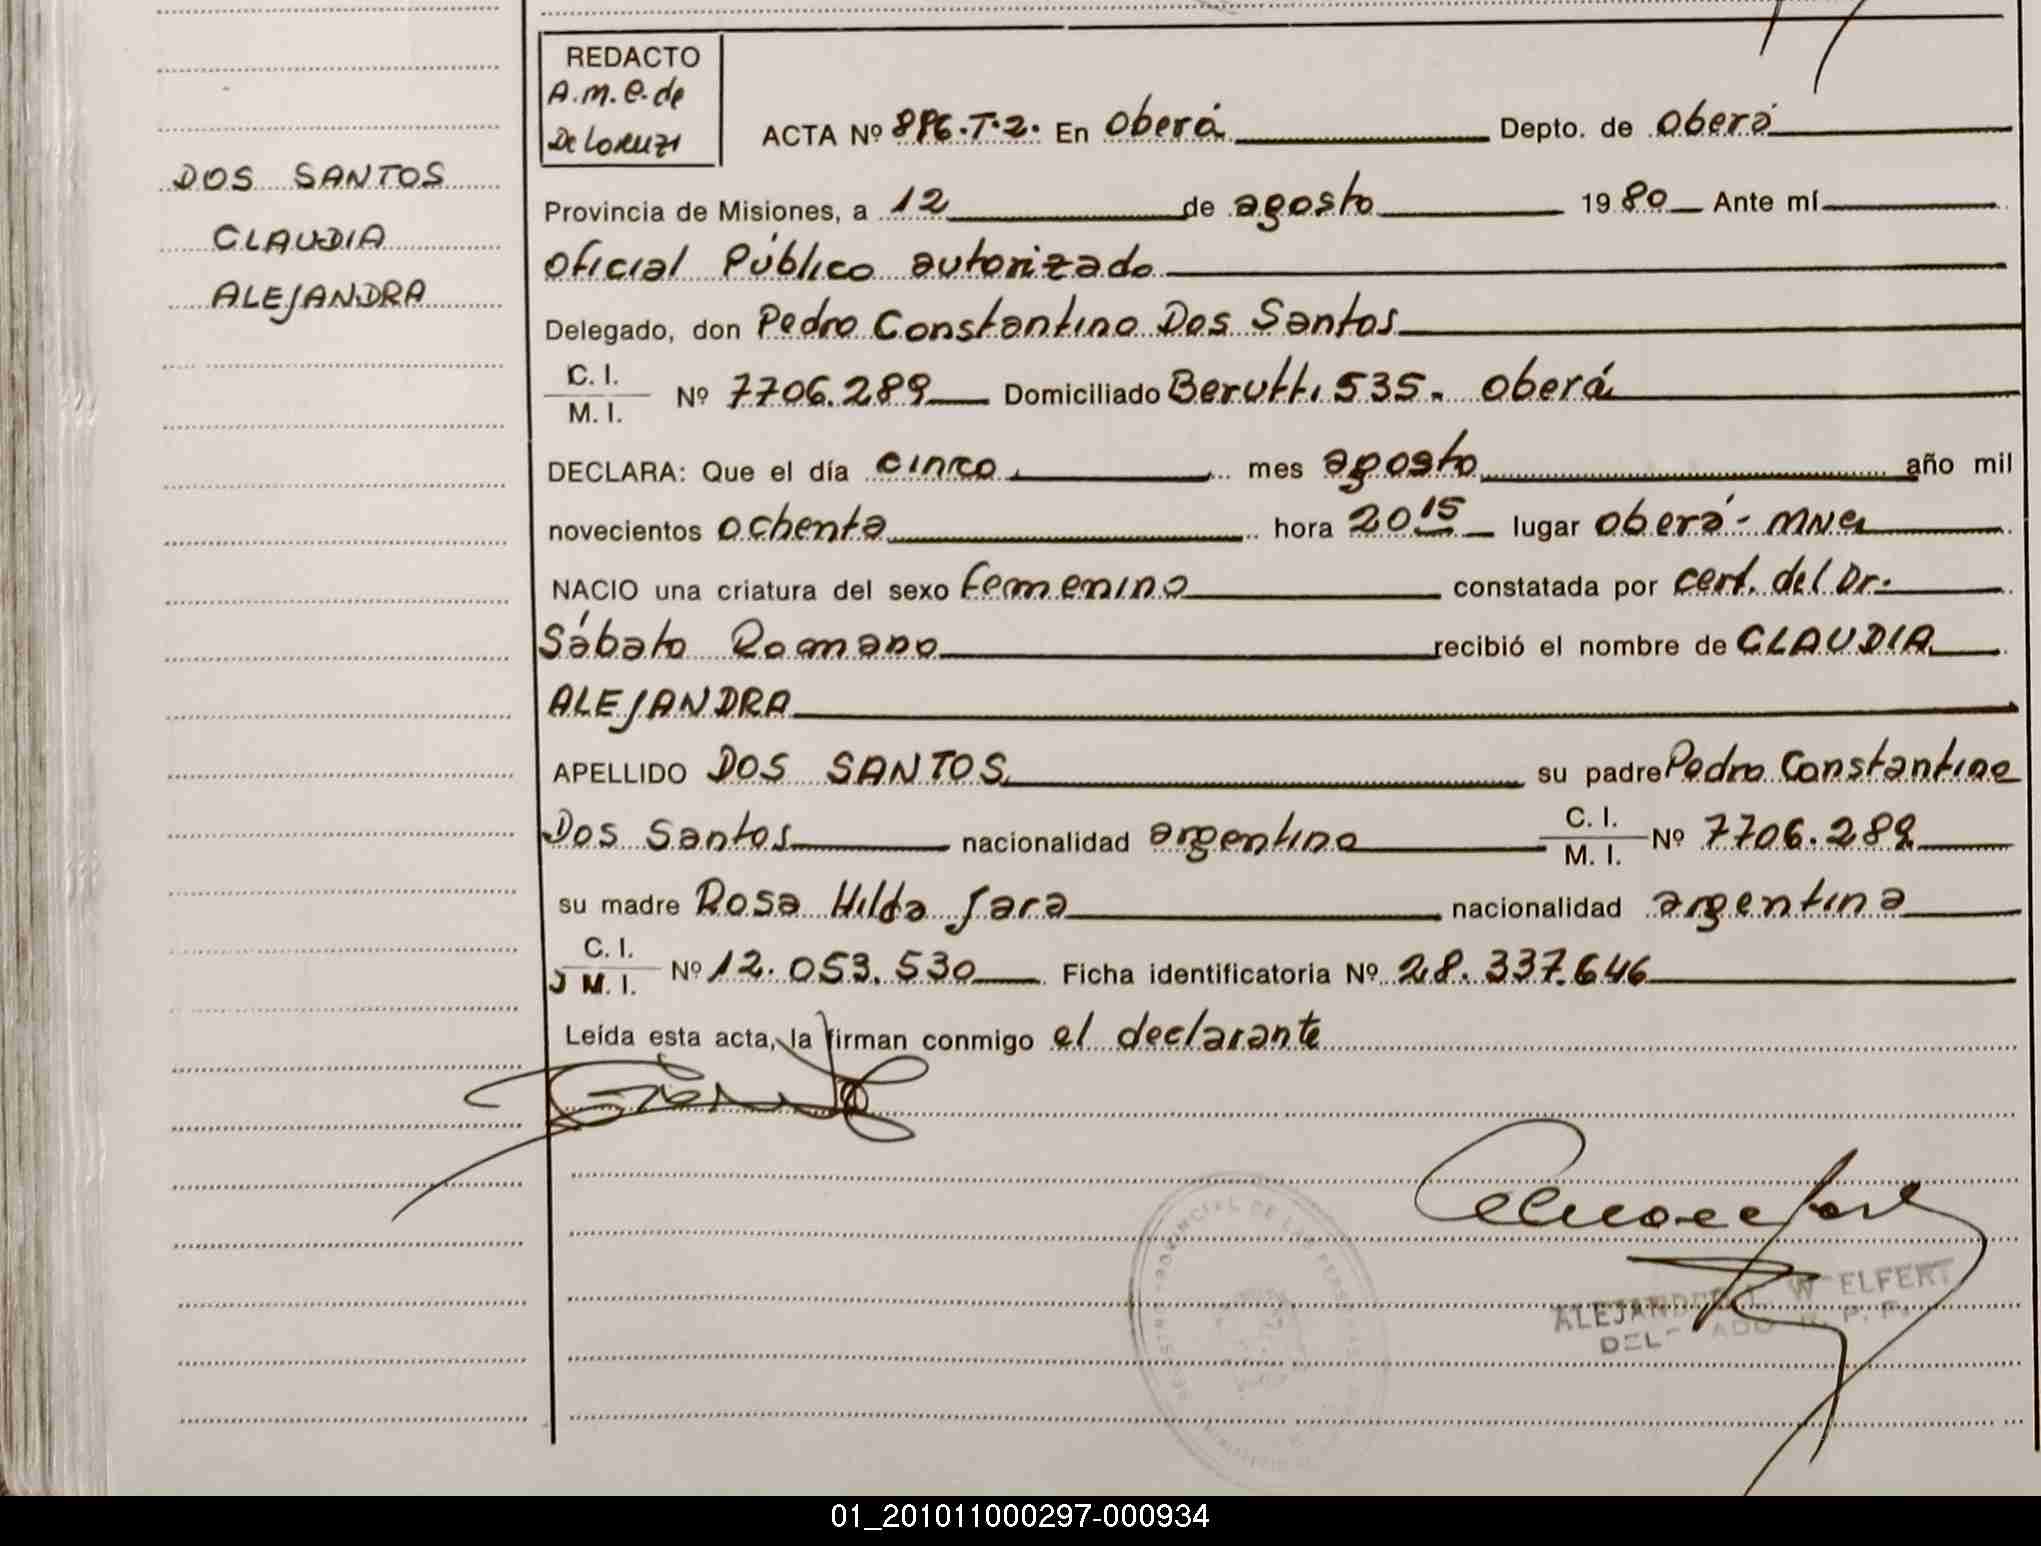 REDACTO
A.M.E. de
De Lorenzi
DOS SANTOS
CLAUDIA
ALEJANDRA
ACTA Nº 886.T.2. En Oberá Depto. de Oberá
Provincia de Misiones, a 12 de agosto 1980 Ante mí
Oficial Público autorizado
Delegado, don Pedro Constantino Dos Santos
C. I.
M. I. Nº 7706.289 Domiciliado Berutti 535. Oberá
DECLARA: Que el día cinco mes agosto año mil
novecientos ochenta hora 20 15 lugar Oberá - Mnes
NACIO una criatura del sexo femenino constatada por cert. del Dr.
Sábato Romano recibió el nombre de CLAUDIA
ALEJANDRA
APELLIDO DOS SANTOS su padre Pedro Constantino
Dos Santos nacionalidad argentino C. I. M. I. Nº 7706.289
su madre Rosa Hilda Jara nacionalidad argentina
C. I.
M. I. Nº 12.053.530 Ficha identificatoria Nº 28.337.646
Leída esta acta, la firman conmigo el declarante
PROVINCIAL DE LAS
W ELFERT
01_201011000297-000934